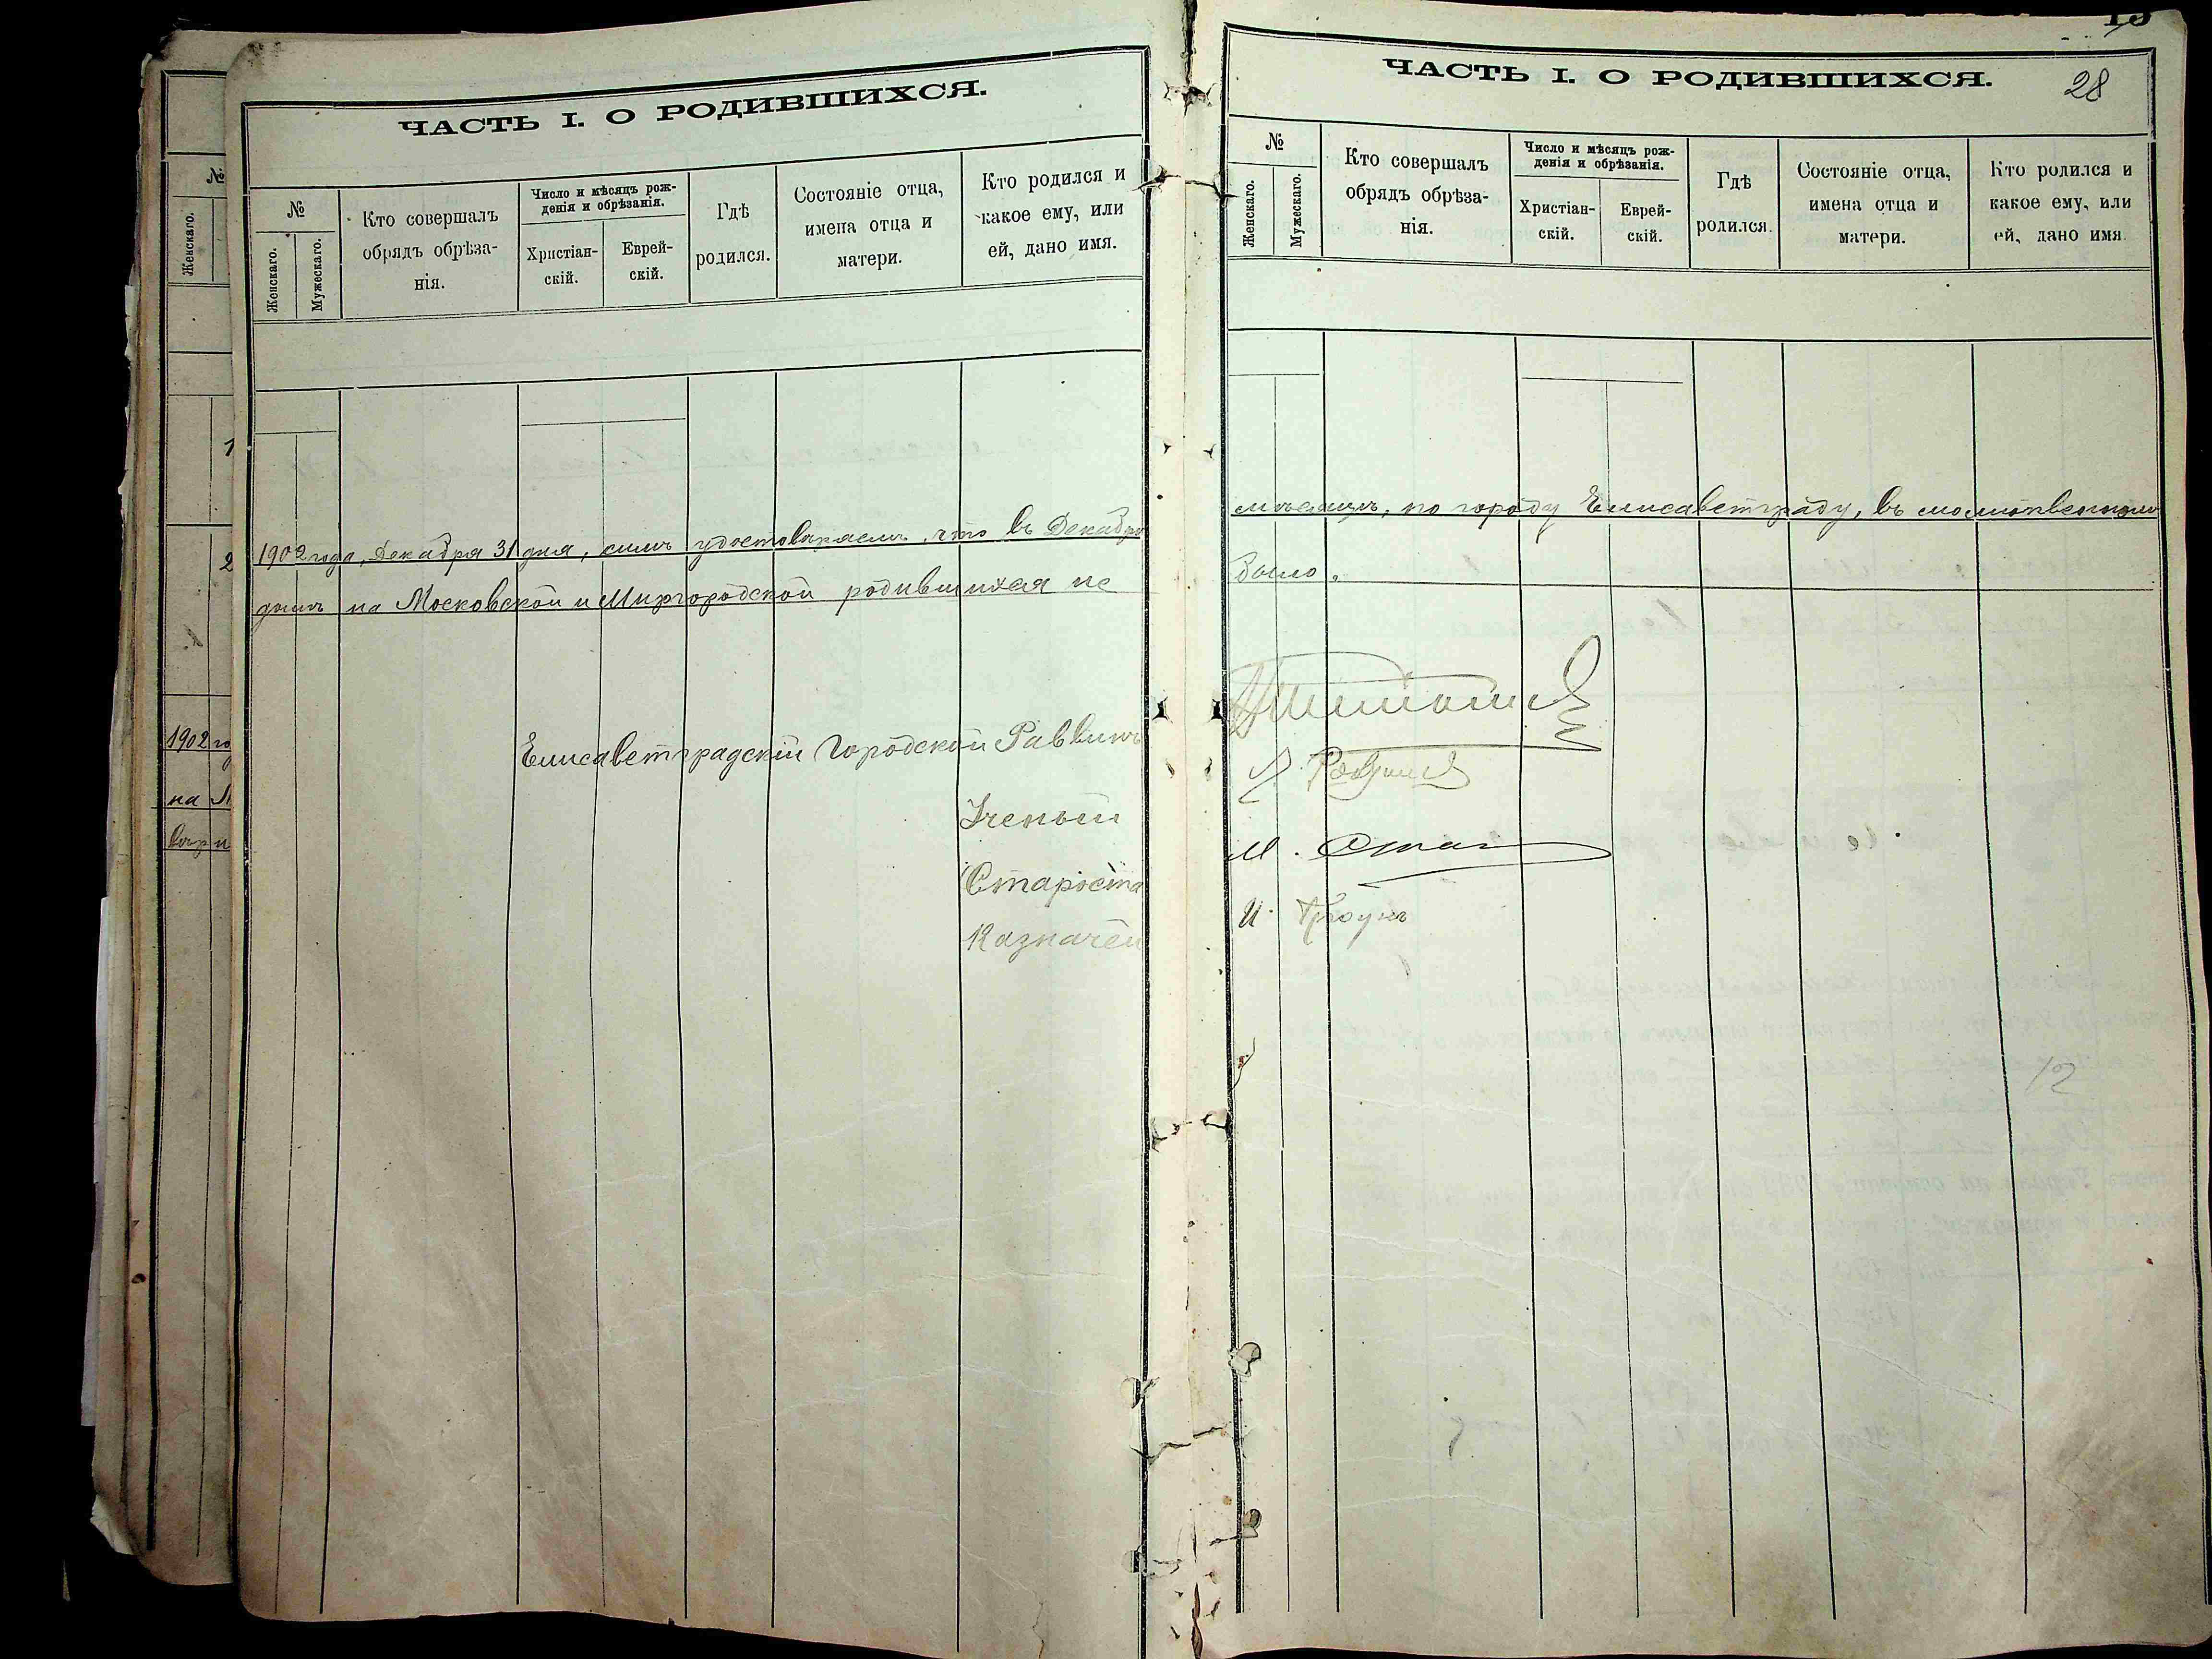 №
Женскаго.
1
2
1902 го
на М
ЧАСТЬ I. О РОДИВШИХСЯ.
№
Женскаго.
Мужескаго.
Кто совершалъ
обрядъ обрѣза-
нія.
Число и мѣсяцъ рож-
денія и обрѣзанія.
Христіан-
скій.
Еврей-
скій.
Гдѣ
родился.
Состояніе отца,
имена отца и
матери.
Кто родился и
какое ему, или
ей, дано имя.
1902 года, Декабря 31 дня, симъ удостовѣряемъ, что въ Декабрѣ
домѣ на Московской и Миргородской родившихся не
Елисаветградскій Городской Раввинъ
Ученый
Староста
Казначей
ЧАСТЬ I. О РОДИВШИХСЯ.
28
№
Женскаго.
Мужескаго.
Кто совершалъ
обрядъ обрѣза-
нія.
Число и мѣсяцъ рож-
денія и обрѣзанія.
Христіан-
скій.
Еврей-
скій.
Гдѣ
родился.
Состояніе отца,
имена отца и
матери.
Кто родился и
какое ему, или
ей, дано имя.
мѣсяцѣ, по городу Елисаветграду, въ молитвенномъ
было.
М.
И.